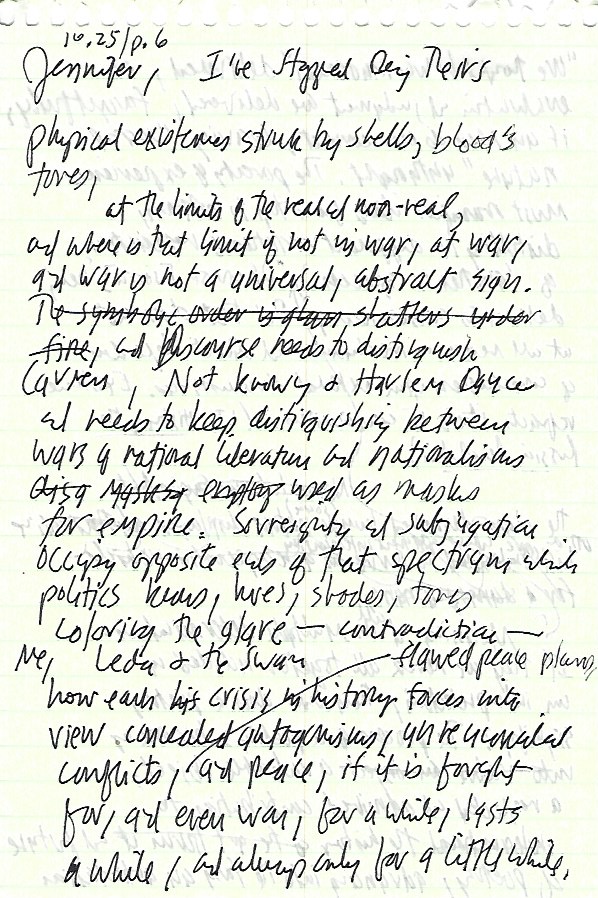 10.25/p.6
Jennifer, I've Stopped Being Thesis
physical existences struck by shells, blood's
tores,
at the limits of the real & non-real,
and where is that limit if not in war, at war,
and war is not a universal, abstract sign.
The symbolic order is glass, shatters under
fire, and Discourse needs to distinguish
Carren, Not knowing & Harlem Dance
and needs to keep distinguishing between
wars of national liberation and nationalisms
used as masks
for empire. Sovereignty and subjugation
occupy opposite ends of that spectrum while
politics hews, hues, shades, tones
coloring the glare — contradiction —
Me, Leda & the Swan — flawed peace plans,
how each crisis in history forces into
view concealed antagonisms, unreconciled
conflicts, and peace, if it is fought
for, and even war, for a while, lasts
a while, and always only for a little while.